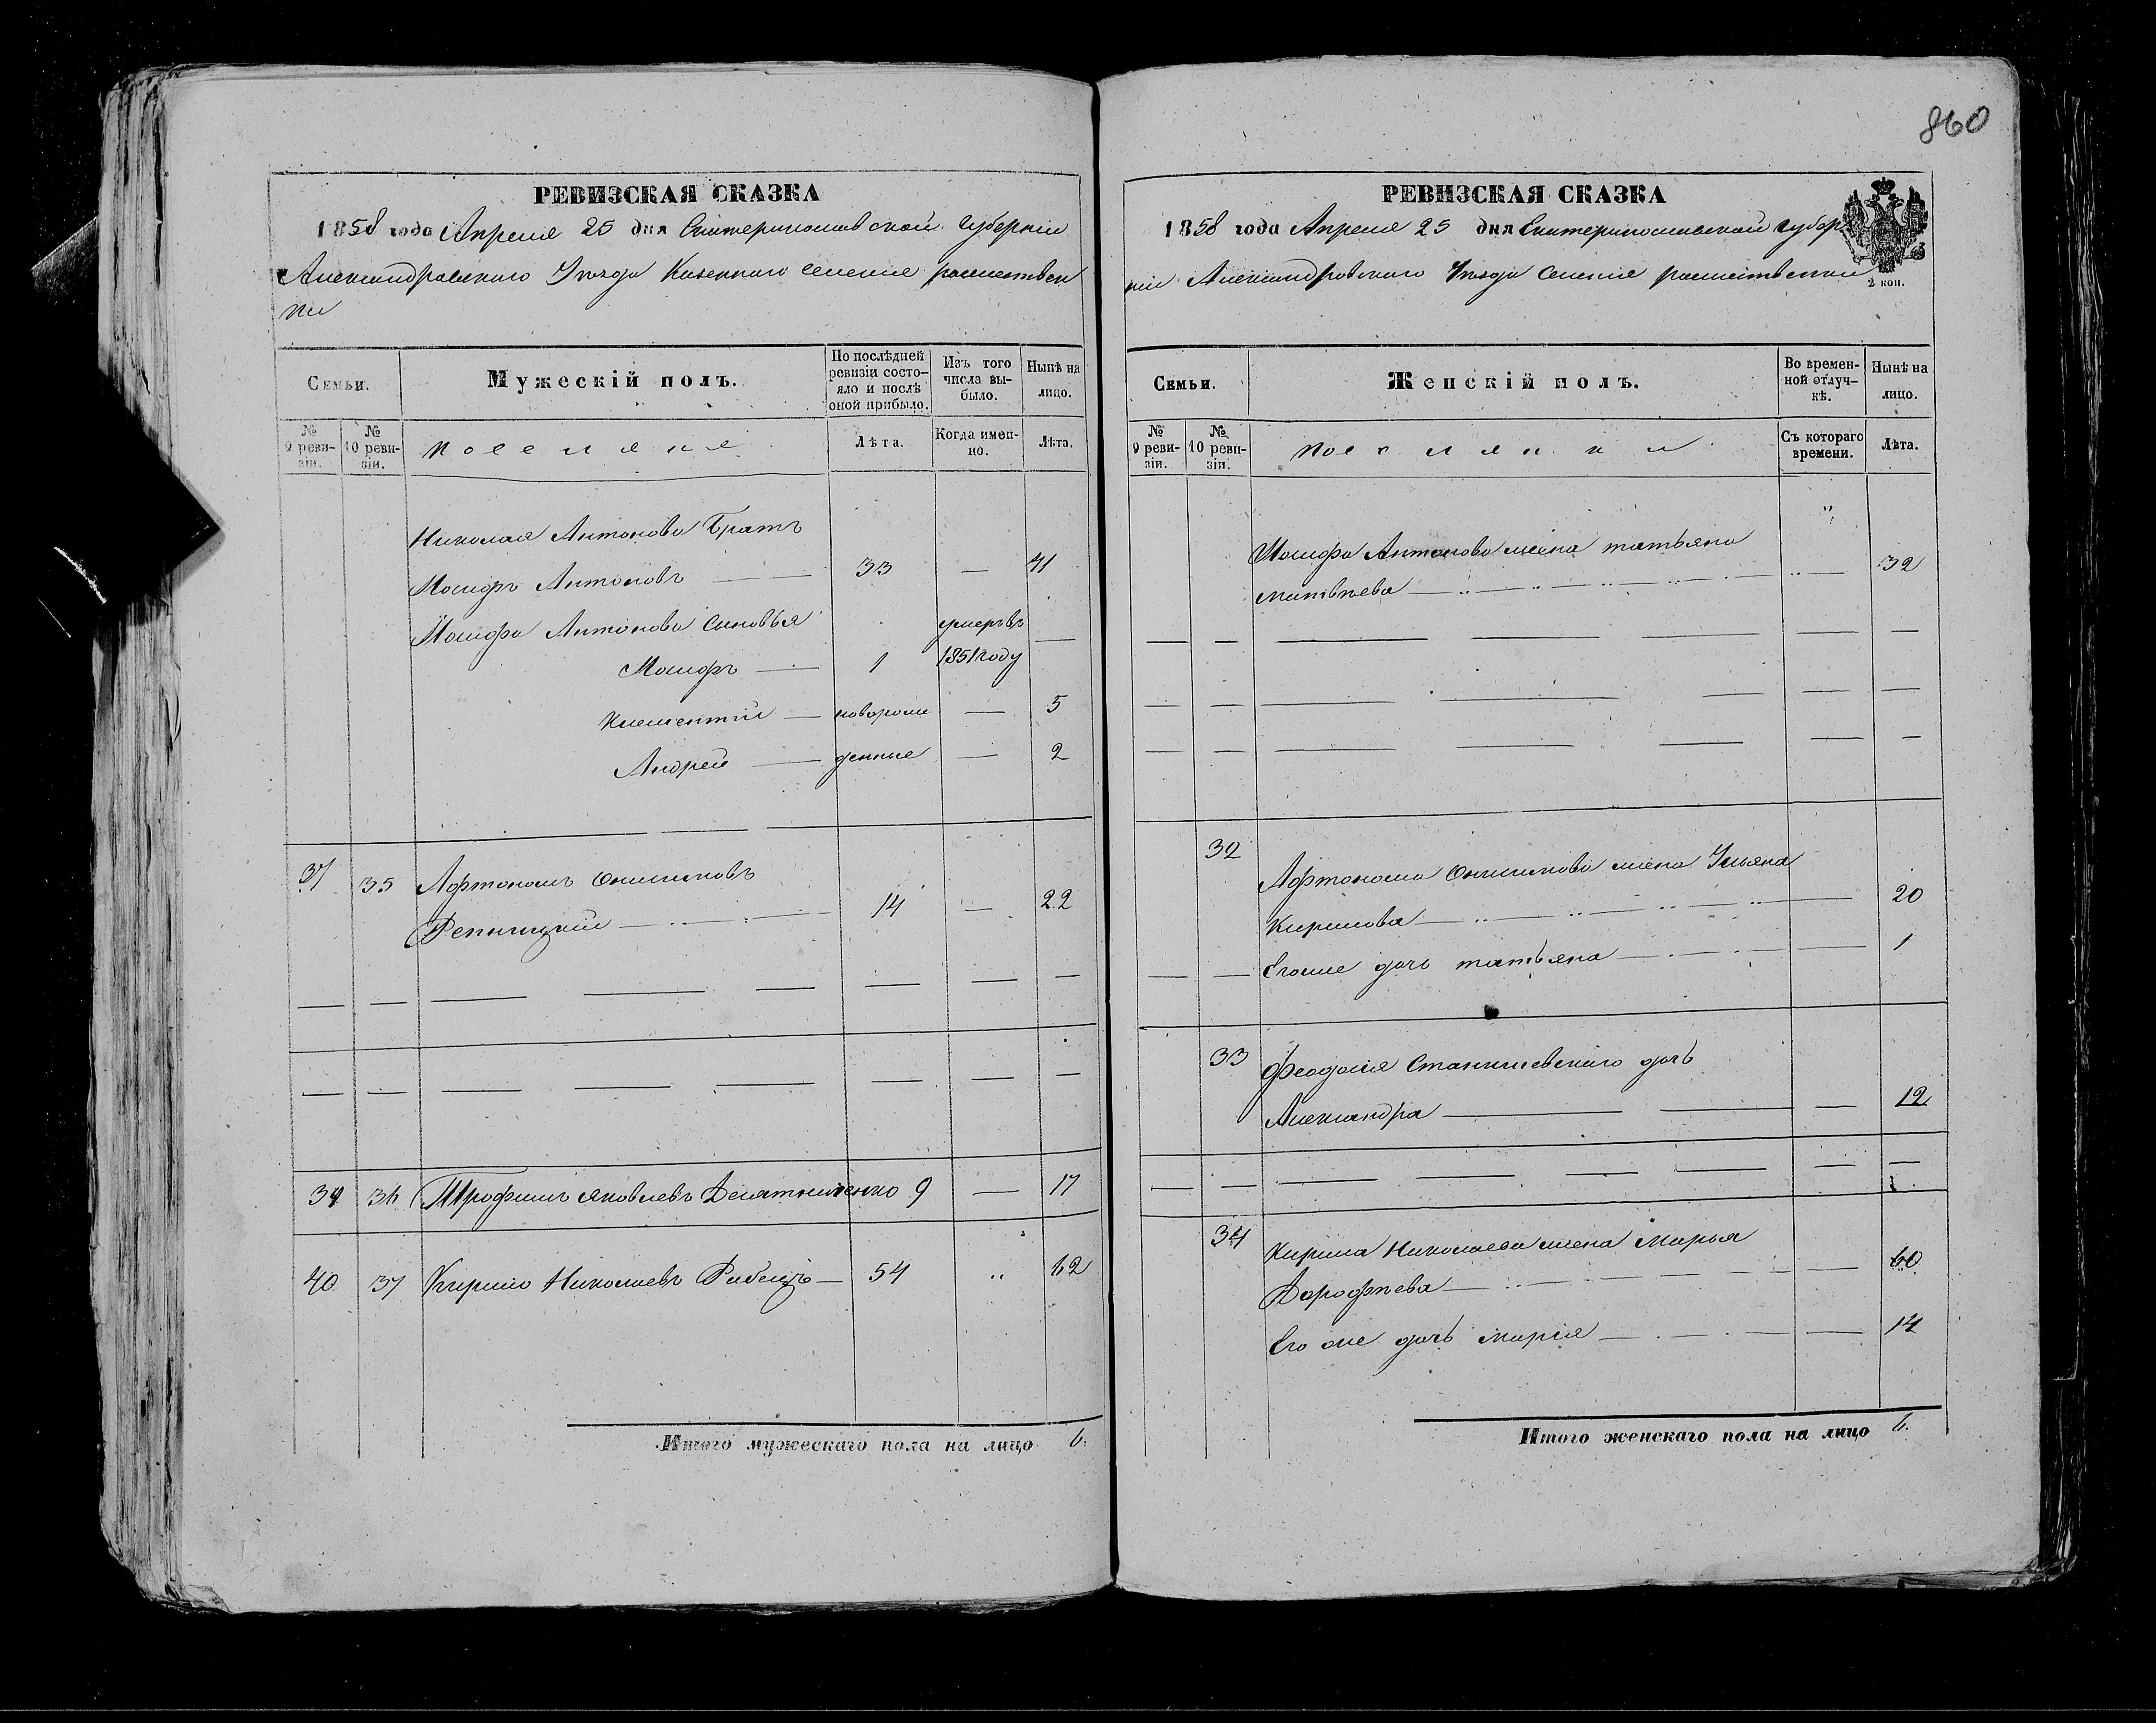 860
РЕВИЗСКАЯ СКАЗКА
1858 года Апреля 25 дня Екатеринославской Губернiи
Александровскаго Уѣзда Казеннаго селенiя рождествен
ки
Семьи.
Мужескiй полъ.
По послѣдней ревизiи состо-
яло и послѣ
оной прибыло.
Изъ того
числа вы-
было.
Нынѣ на
лицо.
№
9 реви-
зiи.
№
10 реви-
зiи.
Поселяне
Лѣта.
Когда имен-
но.
Лѣта.
Николая Антонова Братъ
Иосифъ Антоновъ — 33 — 41
Иосифа Антонова сыновья умеръ въ —
Иосифъ — 1 1851 году
Климентiй — новорож — 5
Андрей — денные — 2
37 35 Афтономъ Онисимовъ
Репницкiй — 14 — 22
39 36 Трофимъ Яковлевъ Десятниченко 9 — 17
40 37 Кирило Николаевъ Рабецъ — 54 " 62
Итого мужескаго пола на лицо 6.
РЕВИЗСКАЯ СКАЗКА
1858 года Апреля 25 дня Екатеринославской губер
нiи Александровскаго Уѣзда Селенiя рождественки
2 коп.
Семьи.
Женскiй полъ.
Во времен-
ной отлуч-
кѣ.
Нынѣ на
лицо.
№
9 реви-
зiи.
№
10 реви-
зiи.
Поселянки
Съ котораго
времени.
Лѣта.
Иосифа Антонова жена татьяна
матвѣева — 32
32 Афтонома Онисимова жена Ульяна
Кирилова — 20
Егоже дочь татьяна — 1
33 Феодосiя Станишевскаго дочь
Александра — 12
34 Кирила Николаева жена Марья
Дорофѣева — 60
Его же дочь марiя — 14
Итого женскаго пола на лицо 6.